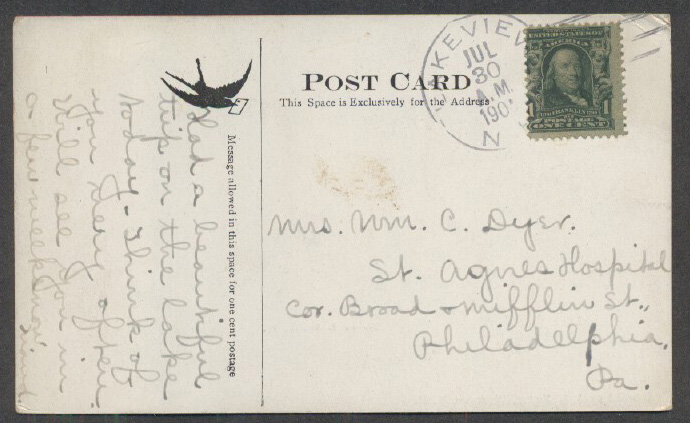 POST CARD
This Space is Exclusively for the Address
Message allowed in this space for one cent postage
LAKEVIEW
JUL
30
A.M.
190
N
UNITED STATES OF
AMERICA
1 1
FRANKLIN
POSTAGE
ONE CENT
Had a beautiful
trip on the lake
today - Think of
you very often
Will see you in
a few weeks now
Mrs. Wm. C. Dyer.
St. Agnes Hospital
Cor. Broad & Mifflin St.,
Philadelphia,
Pa.